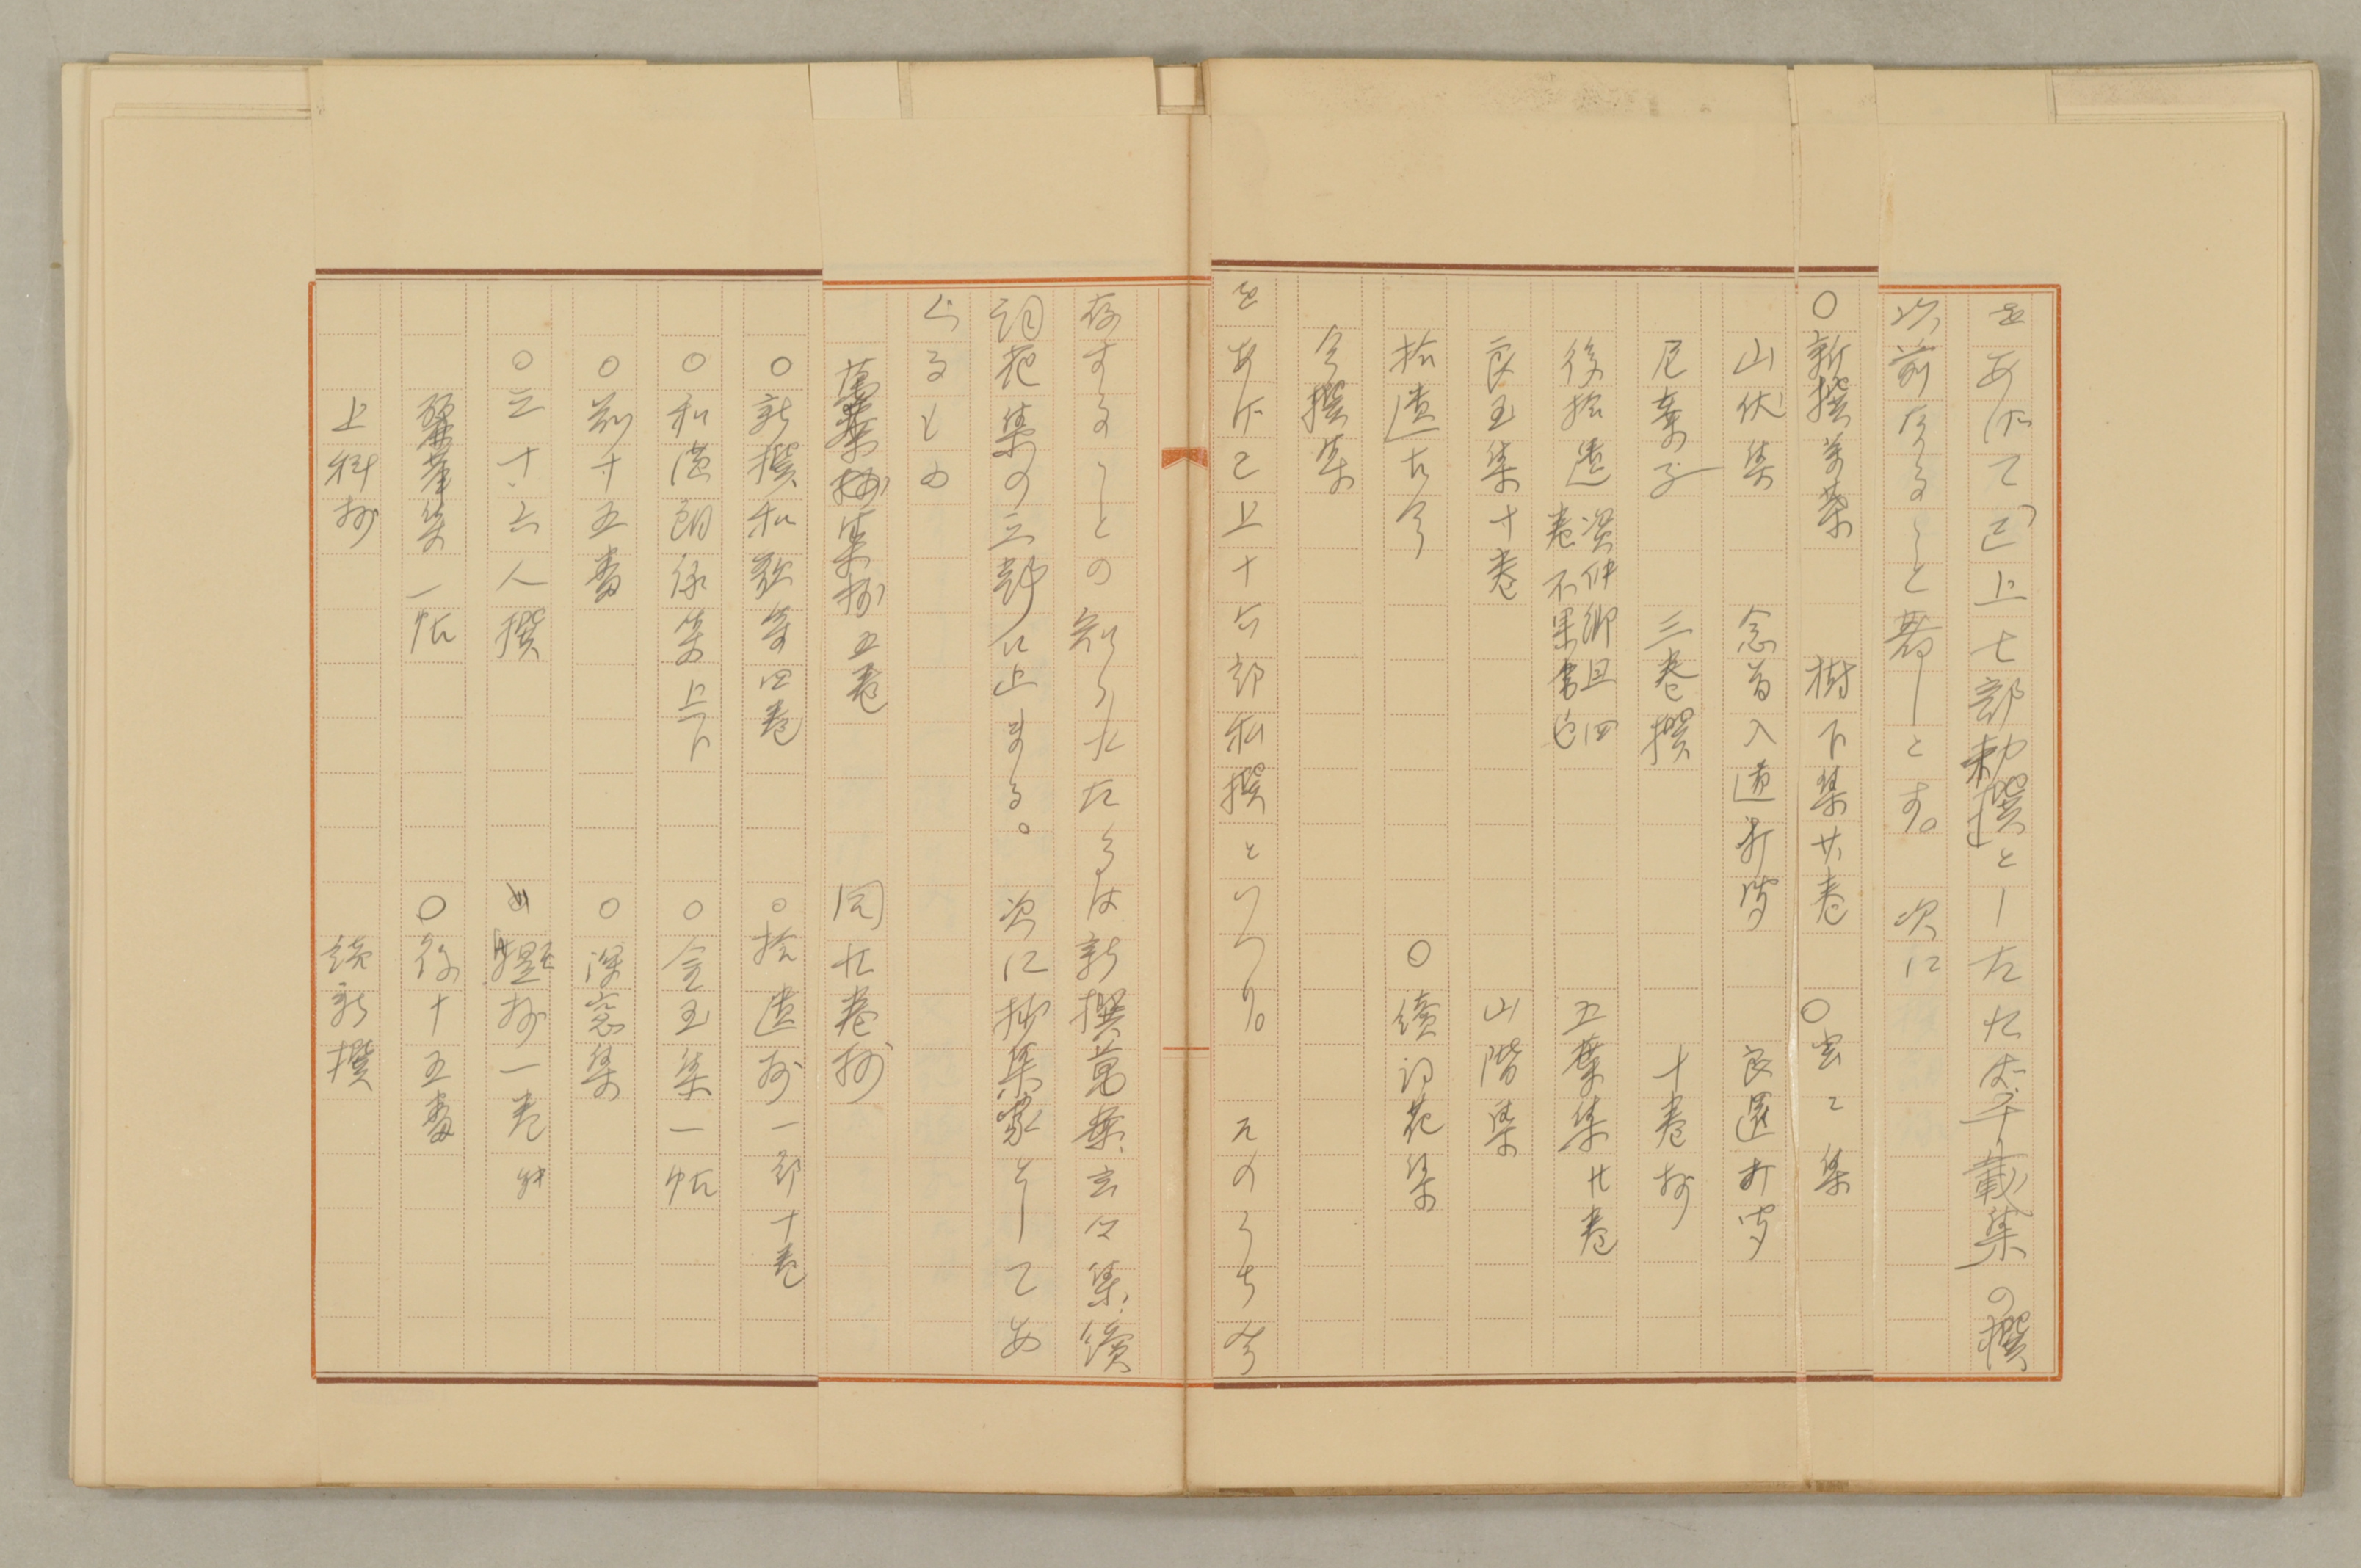 をあげて「已上七部勅撰」としたれば千載集の撰
以前なること著しとす。 次に
○新撰万葉 樹下集廿巻 ○玄々集
山伏集 念首入道打聞 良暹打聞
尼草子 三巻撰 十巻抄
後拾遺 資仲卿且四巻不果書也 五葉集廿巻
良玉集十巻 山階集
拾遺古今 ○續詞花集
今撰集
をあげ已上十六部私撰といへり。 そのうち今
存することの知られたるは新撰萬葉、玄々集、續
詞花集の三部に止まる。 次に抄集家としてあ
ぐるもの
萬葉抄集抄五巻 同廿巻抄
○新撰和歌集四巻 ○拾遺抄一部十巻
○和漢朗詠集上下 ○金玉集一帖
○前十五番 ○深窓集
○三十六人撰 題抄一巻
麗華集一帖 ○後十五番
上科抄 続新撰